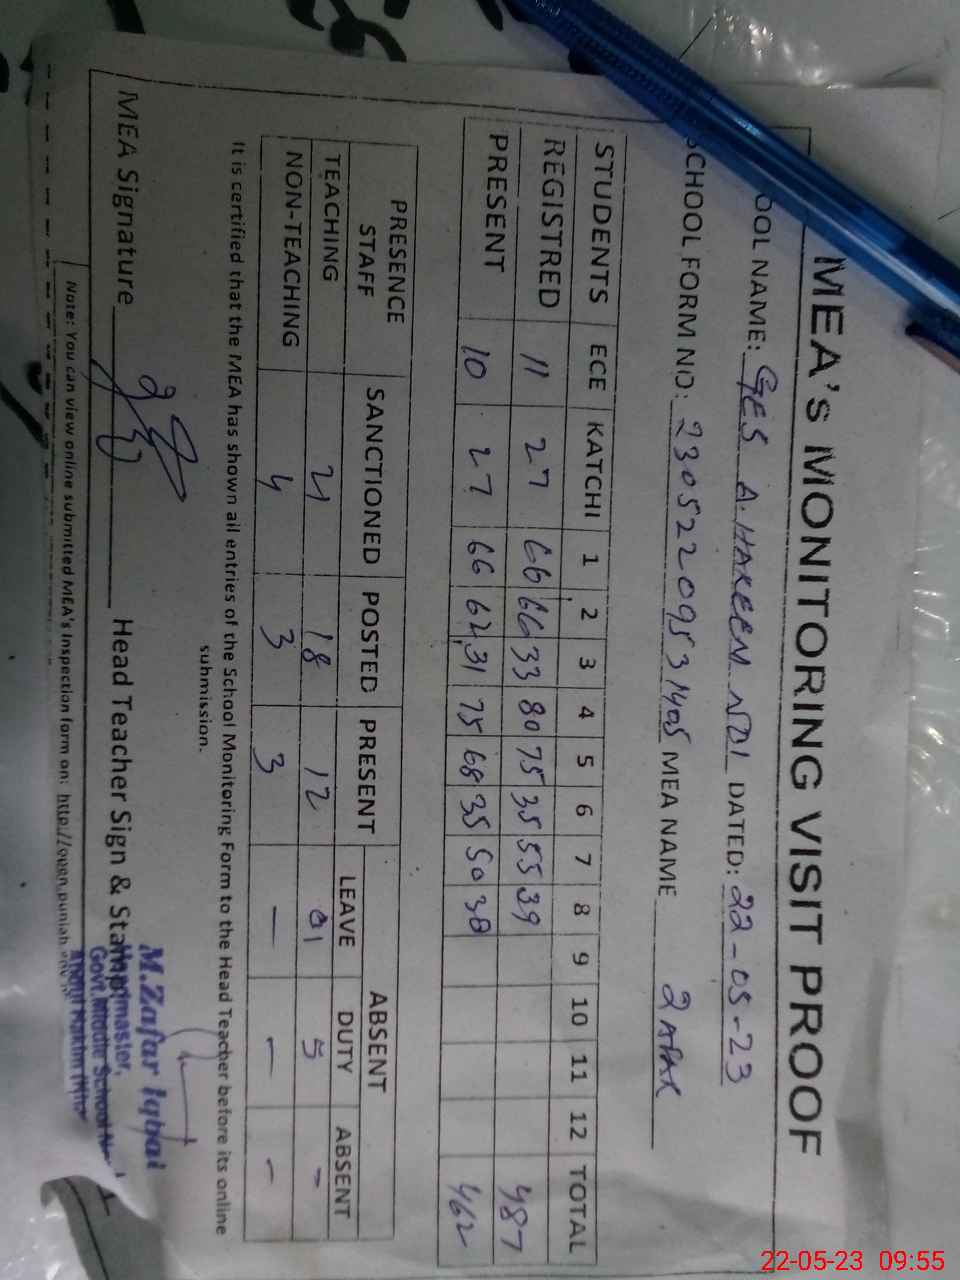 MEA's MONITORING VISIT PROOF
OOL NAME: GES A. HAKEEM NO1 DATED: 22-05-23
SCHOOL FORM NO: 23052209531405 MEA NAME ZAFAR
STUDENTS ECE KATCHI 1 2 3 4 5 6 7 8 9 10 11 12 TOTAL
REGISTRED 11 27 66 66 33 80 75 35 55 39 487
PRESENT 10 27 66 62 31 75 68 35 50 38 462
PRESENCE STAFF SANCTIONED POSTED PRESENT ABSENT
LEAVE DUTY ABSENT
TEACHING 21 18 12 01 5 -
NON-TEACHING 4 3 3 - - -
It is certified that the MEA has shown all entries of the School Monitoring Form to the Head Teacher before its online
submission.
MEA Signature Head Teacher Sign & Stamp
M.Zafar Iqbal
Headmaster,
Govt.Middle School
Note: You can view online submitted MEA's Inspection form on: http://open.punjab.gov.
22-05-23 09:55